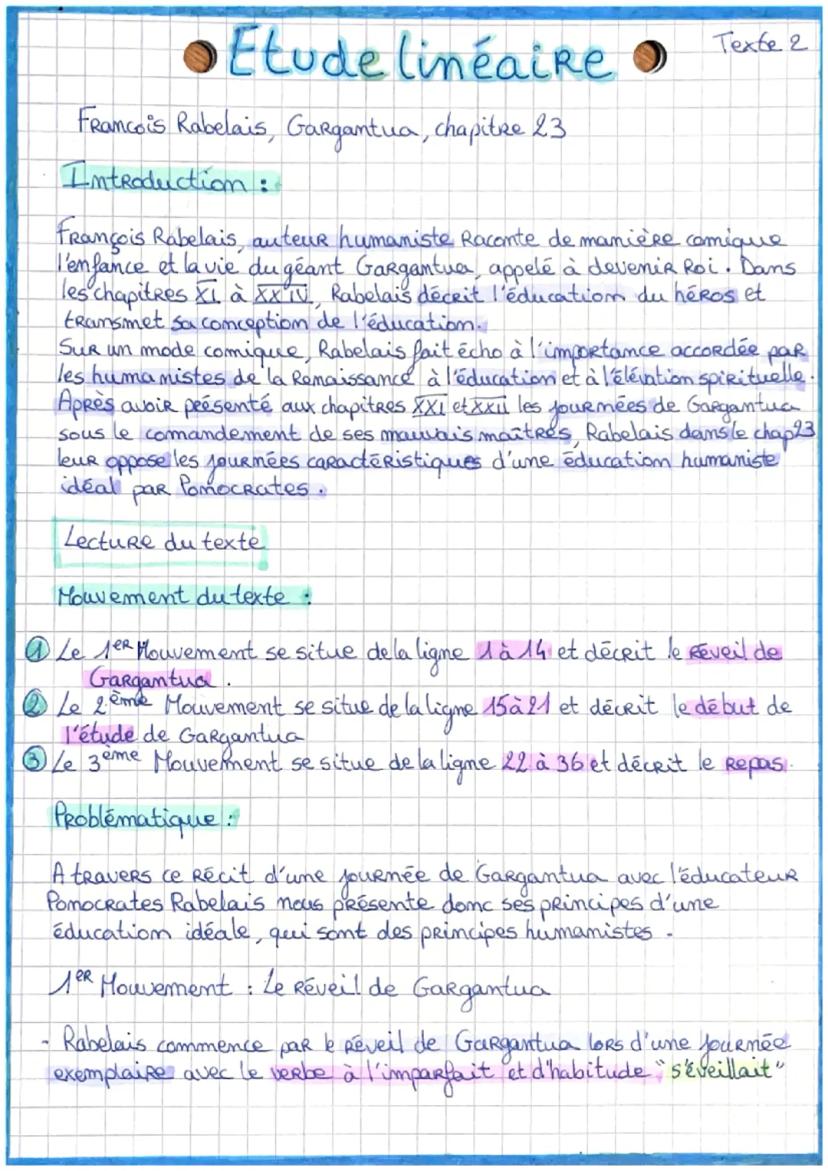 Etude linéaire
Texte 2
Francois Rabelais, Gargantua, chapitre 23
Introduction :
François Rabelais, auteur humaniste raconte de manière comique
l'enfance et la vie du géant Gargantua, appelé à devenir Roi. Dans
les chapitres XI à XXIV, Rabelais décrit l'éducation du héros et
transmet sa conception de l'éducation.
Sur un mode comique, Rabelais fait écho à l'importance accordée par
les humanistes de la Renaissance à l'éducation et à l'élévation spirituelle.
Après avoir présenté aux chapitres XXI et XXII les journées de Gargantua
sous le comandement de ses mauvais maîtres, Rabelais dans le chap23
leur oppose les journées caractéristiques d'une éducation humaniste
idéal par Ponocrates.
Lecture du texte
Mouvement du texte :
1 Le 1er Mouvement se situe de la ligne 1 à 14 et décrit le réveil de
Gargantua.
2 Le 2ème Mouvement se situe de la ligne 15 à 21 et décrit le début de
l'étude de Gargantua
3 Le 3ème Mouvement se situe de la ligne 22 à 36 et décrit le repas.
Problématique :
A travers ce récit d'une journée de Gargantua avec l'éducateur
Ponocrates Rabelais nous présente donc ses principes d'une
éducation idéale, qui sont des principes humanistes.
1er Mouvement : Le réveil de Gargantua
- Rabelais commence par le réveil de Gargantua lors d'une journée
exemplaire avec le verbe à l'imparfait et d'habitude "s'éveillait"